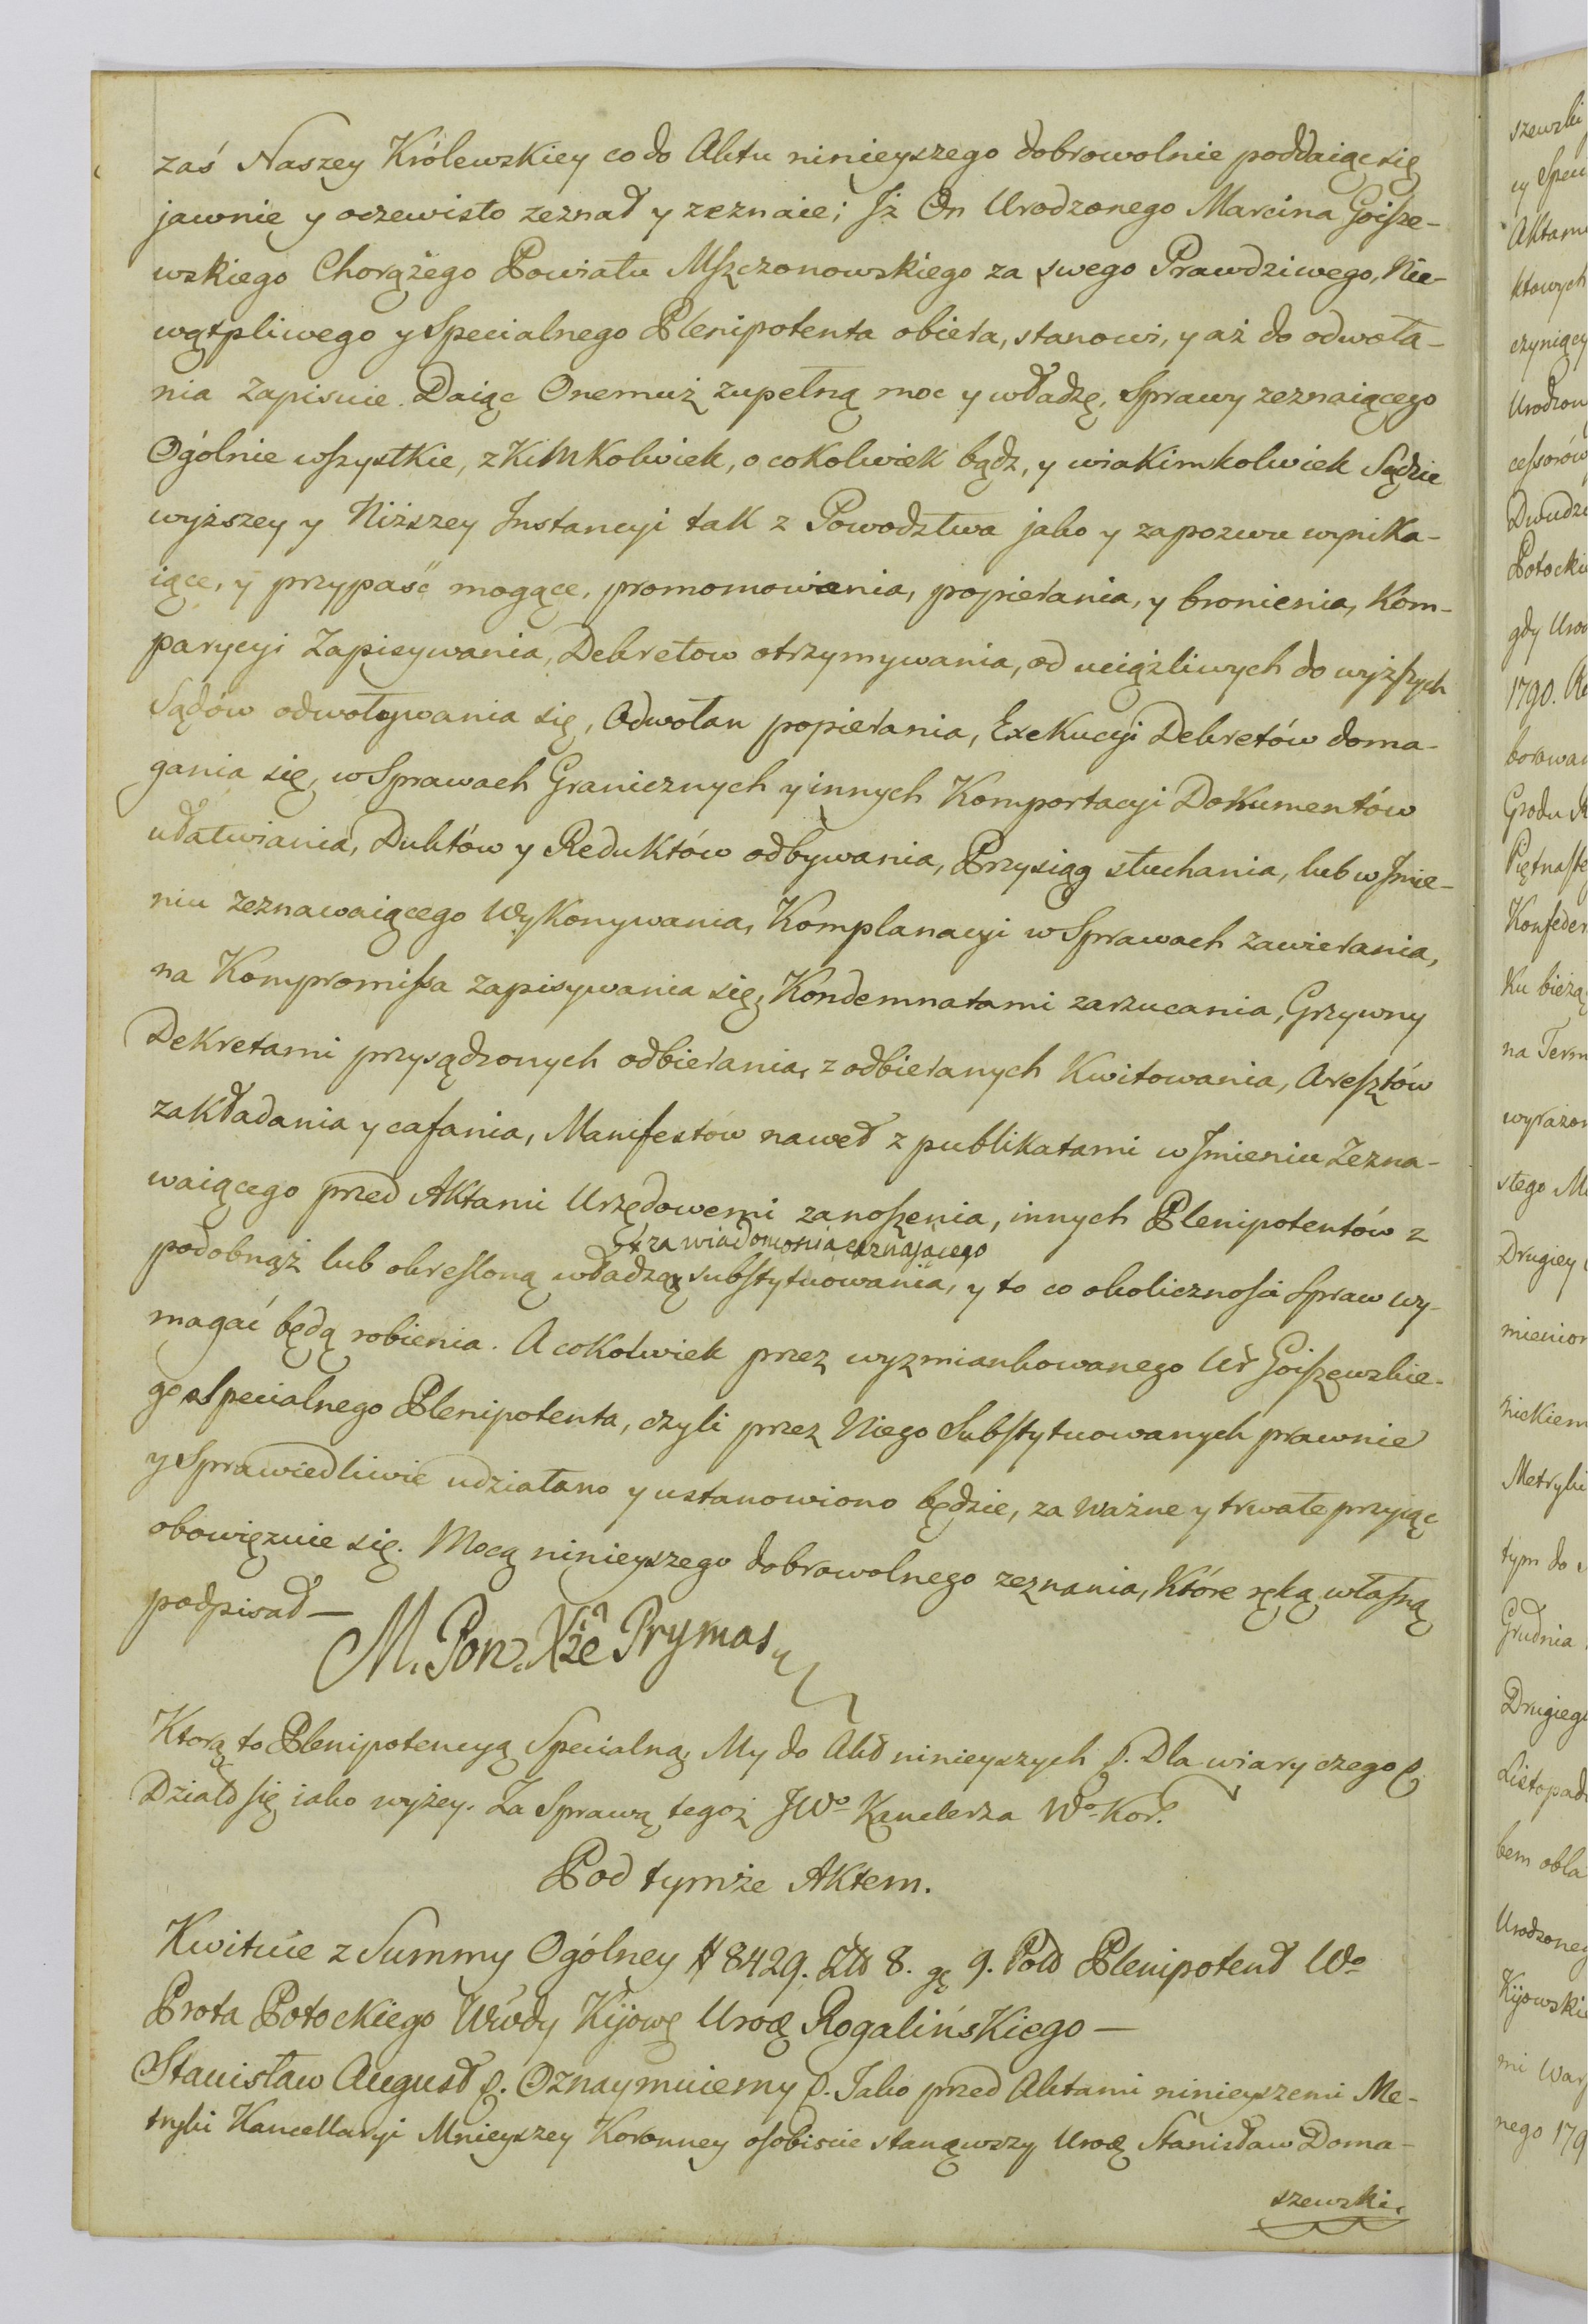 zaś Naszey Królewskiey co do Aktu ninieyszego dobrowolnie poddaiąc się
jawnie y oczewisto zeznał y zeznaie; Jż On Urodzonego Marcina Goisze-
wskiego Chorążego Powiatu Mszczonowskiego za swego Prawdziwego, Nie-
wątpliwego y Specialnego Plenipotenta obiera, stanowi, y aż do odwoła-
nia zapisuie. Daiąc Onemuż zupełną moc y władzę, Sprawy zeznaiącego
Ogólnie wszystkie, z kimkolwiek, o cokolwiek bądz, y wiakimkolwiek Sądzie
wyższey y Niższey Instancyi tak z Powodztwa jako y zapozwu wynika-
iące, y przypaść mogące, promomowania, popierania, y bronienia, Kom-
parycyi Zapisywania, Dekretow otrzymywania, od uciążliwych do wyższych
Sądów odwoływania się, Odwołan popierania, Exekucyi Dekretów doma-
gania się, w Sprawach Granicznych y innych Komportacyi Dokumentów
ułatwiania, Duktów y Reduktów odbywania, Przysiąg słuchania, lub w Jmie-
niu zeznawaiącego Wykonywania, Komplanacyi w Sprawach zawierania,
na Kompromissa zapisywania się, Kondemnatami zarzucania, Grzywny
Dekretami przysądzonych odbierania, z odbieranych Kwitowania, Aresztów
zakładania y cafania, Manifestów nawet z publikatami w Jmieniu Zezna-
waiącego przed Aktami Urzędowemi zanoszenia, innych Plenipotentów z
podobnąż lub okresloną władzą substytuowania, y to co okolicznosci Spraw wy-
magać będą robienia. A cokolwiek przez wyzmiankowanego Ur Goiszewskie-
go Specialnego Plenipotenta, czyli przez Niego Substytuowanych prawnie
y Sprawiedliwie udziałano y ustanowiono będzie, za ważne y trwałe przyiąć
obowięzuie się. Mocą ninieyszego dobrowolnego zeznania, które ręką własną
podpisał —
M. Pon. Xże Prymas
Ktorą to Plenipotencyą Specialną My do Akt ninieyszych p. Dla wiary czego p.
Działo się iako wyżey. Za Sprawą tegoż JWo Kanclerza Wo Kor.
Pod tymże Aktem.
Kwituie z Summy Ogólney # 8429. Złt 8. gę 9. Pold Plenipotent Wo
Prota Potockiego Wwdy Kijowę Urodz Rogalińskiego —
Stanisław August p. Oznaymuiemy p. Jako przed Aktami ninieyszemi Me-
tryki Kancellaryi Mnieyszey Koronney osobiscie stanąwszy Urodz Stanisław Doma-
szewski.
szewski
Aktami
ktowych
czyniący
Urodzon
cessorów
Potocki
gdy Uro
1790.
Grodu
Konfeder
Ku bieżą
na Term
wyrażon
stego
Drugiey
mienion
nickiem
Metryki
tym do
Grudnia
Drugiego
Listopada
bem obla
Urodzoneg
Kijowskie
mi War
nego 179